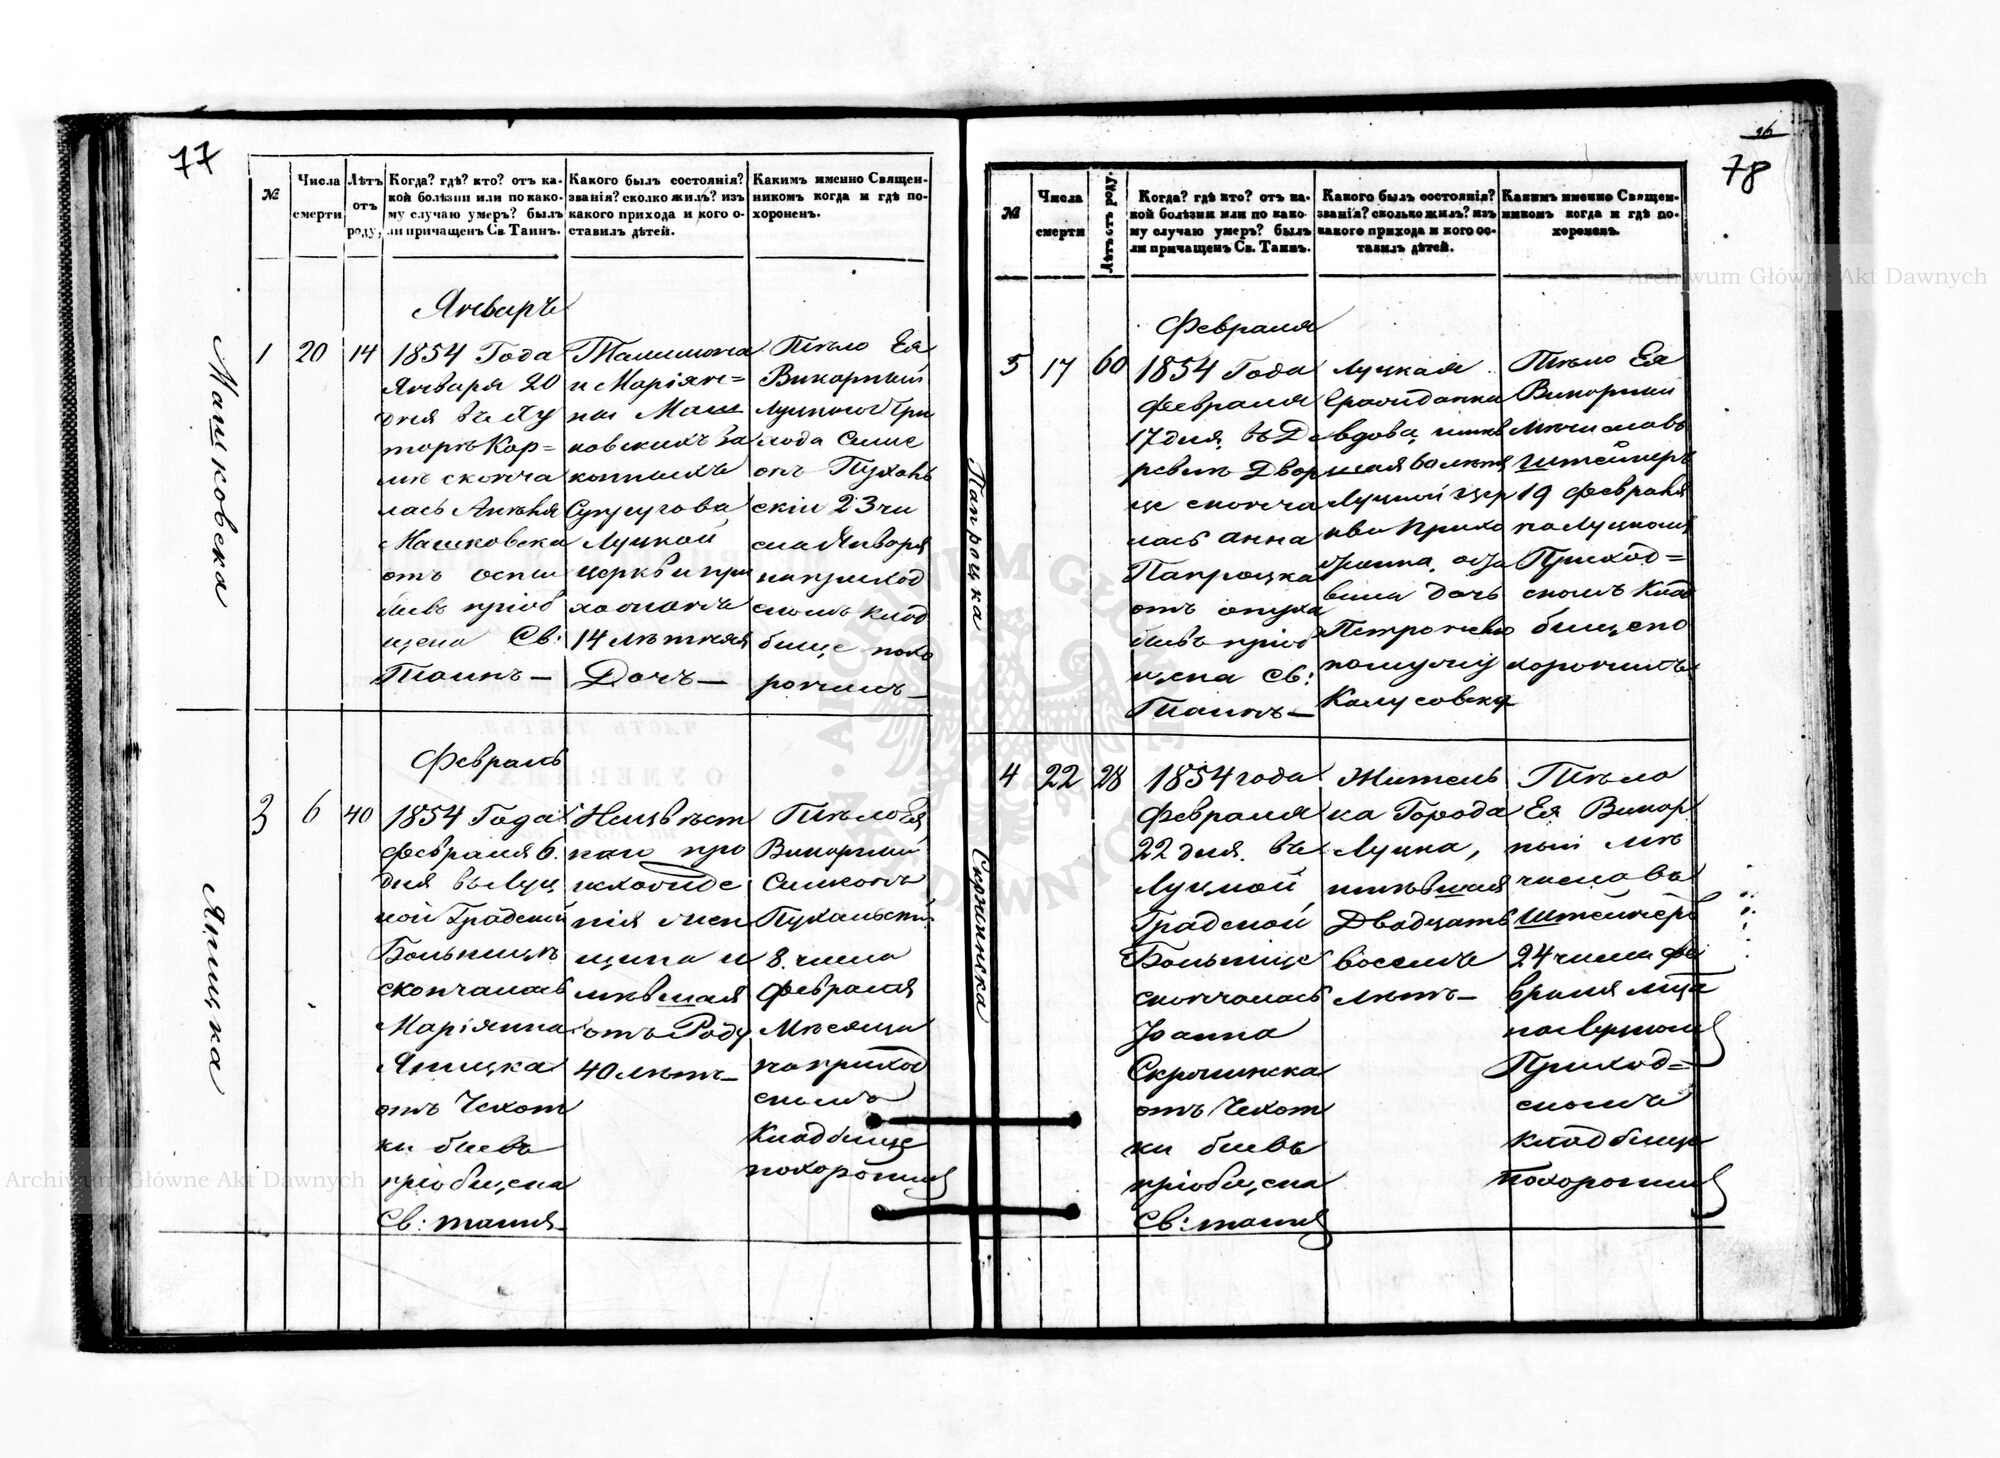 77
№
Числа смерти
Лѣтъ отъ роду,
Когда? гдѣ? кто? отъ ка-
кой болѣзни или по како-
му случаю умеръ? былъ
ли причащенъ Св Таинъ.
Какого былъ состоянія?
званія? сколко жилъ? изъ
какого прихода и кого о-
ставилъ дѣтей.
Какимъ именно Священ-
никомъ когда и гдѣ по-
хороненъ.
Машковска
Январь
1
20
14
1854 Года
Января 20
дня въ Ху
торѣ Кор=
скончa
лась
Машковска
отъ оспы
бывъ пріоб
щена Св:
Таинъ—
и Маріян=
ны Маш
ковскихъ за
конныхъ
Супругова
Луцкой
церкви при
хожанъ
14 лѣтняя
Дочь—
Тѣло Ея
Викарный
Луцкого При
хода Симе
онъ Пухаль
скій 23 чи
сла Января
на приход
скомъ клад
бище похо
ронилъ—
Яницка
Февраль
3
6
40
1854 Года
Февраля 6.
дня въ Луц
кой Градской
Больницѣ
скончалась
Маріянна
Яницка
отъ Чехот
ки бывъ
пріобщена
Св: таинъ—
Неизвѣст
наго про
исхожде
нія жен
щина и
мѣвшая
отъ Роду
40 лѣтъ—
Тѣло Ея
Викарный
Симеонъ
Пухальскій
8. числа
Февраля
Мѣсяца
на приход
скомъ
Кладбище
похоронилъ
26
78
№
Числа смерти
Лѣтъ отъ роду.
Когда? гдѣ кто? отъ ка-
кой болѣзни или по како-
му случаю умеръ? былъ
ли причащенъ Св. Таинъ.
Какого былъ состоянія?
званія? сколько жилъ? изъ
какого прихода и кого ос-
тавилъ дѣтей.
Какимъ именно Священ-
никомъ когда и гдѣ по-
хороненъ.
Папроцка
Февраля
5
17
60
1854 Года
Февраля
17 дня, въ Де
ревнѣ Двор
це сконча
лась Анна
Папроцка
отъ опуха
бывъ пріоб
щена Св:
Таинъ—
Луцкая
Гражданка
вдова, имѣв
шая 60 лѣтъ
Луцкой цер
кви Прихо
жанка,
дочь
Калусовску
Тѣло Ея
Викорный
Мѣчиславъ
Штейнеръ
19 Февраля
на Луцкомъ
Приход=
скомъ Клад
бищѣ по
хоронилъ
Скржинска
4
22
28
1854 года
Февраля
22 дня. въ
Луцкой
Градской
Больнице
скончалась
Іоанна
Скржинска
отъ Чехот
ки бывъ
пріобщена
Св: таинъ
Житель
ка Города
Луцка,
имѣвшая
Двадцать
восемь
лѣтъ—
Тѣло
Ея Викар
ный Мѣ
числавъ
Штейнеръ
24 числа Фе
враля
на Луцкомъ
Приход=
скомъ
кладбище
похоронилъ
Archiwum Główne Akt Dawnych
Archiwum Główne Akt Dawnych